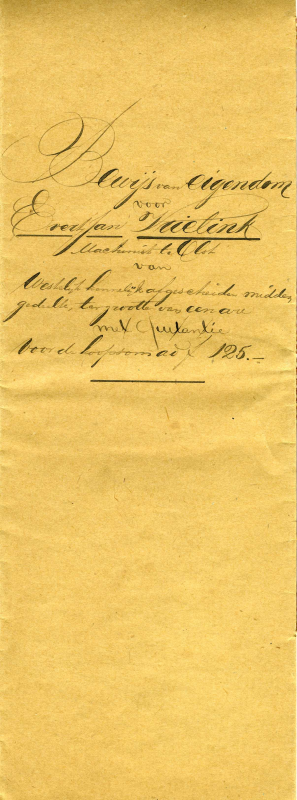 Bewijs van eigendom
voor
Evert Jan Vrielink
Machinist te Olst
van
Westelijk kennelijk afgescheiden midden
gedeelte, ter grootte van een are
met Quitantie
voor de koopsom ad ƒ 125.–